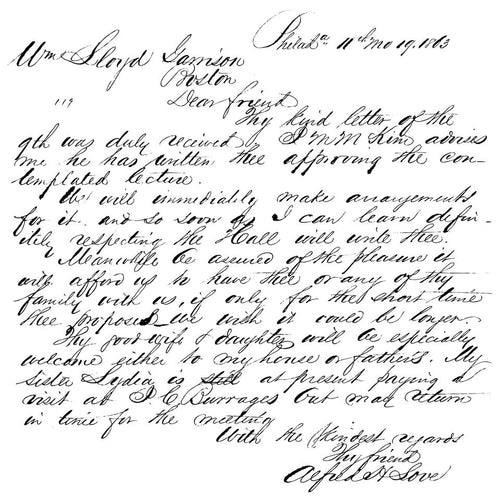 Philada 11th Mo 19. 1863
Wm Lloyd Garrison
Boston
Dear friend
Thy kind letter of the
9th was duly received J M M Kim advises
me he has written thee approving the con-
templated lecture.
We will immediatly make arrangements
for it. and so soon as I can learn defin-
itely respecting the Hall will write thee.
Meanwhile be assured of the pleasure it
will afford us to have thee or any of thy
family with us, if only for the short time
thee proposes – We wish it could be longer.
Thy good wife & daughter will be especially
welcome either to my house or father's. My
sister Lydia is still at present paying a
visit at J C Burrages but may return
in time for the meeting
With the kindest regards
Thy friend
Alfred H Love